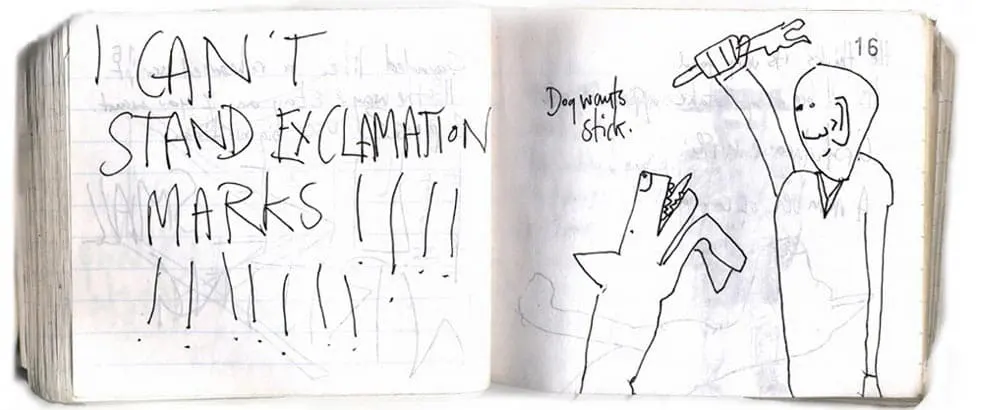 I CAN'T
STAND EXCLAMATION
MARKS !!!!
!!!!!!!
16
Dog wants
stick.